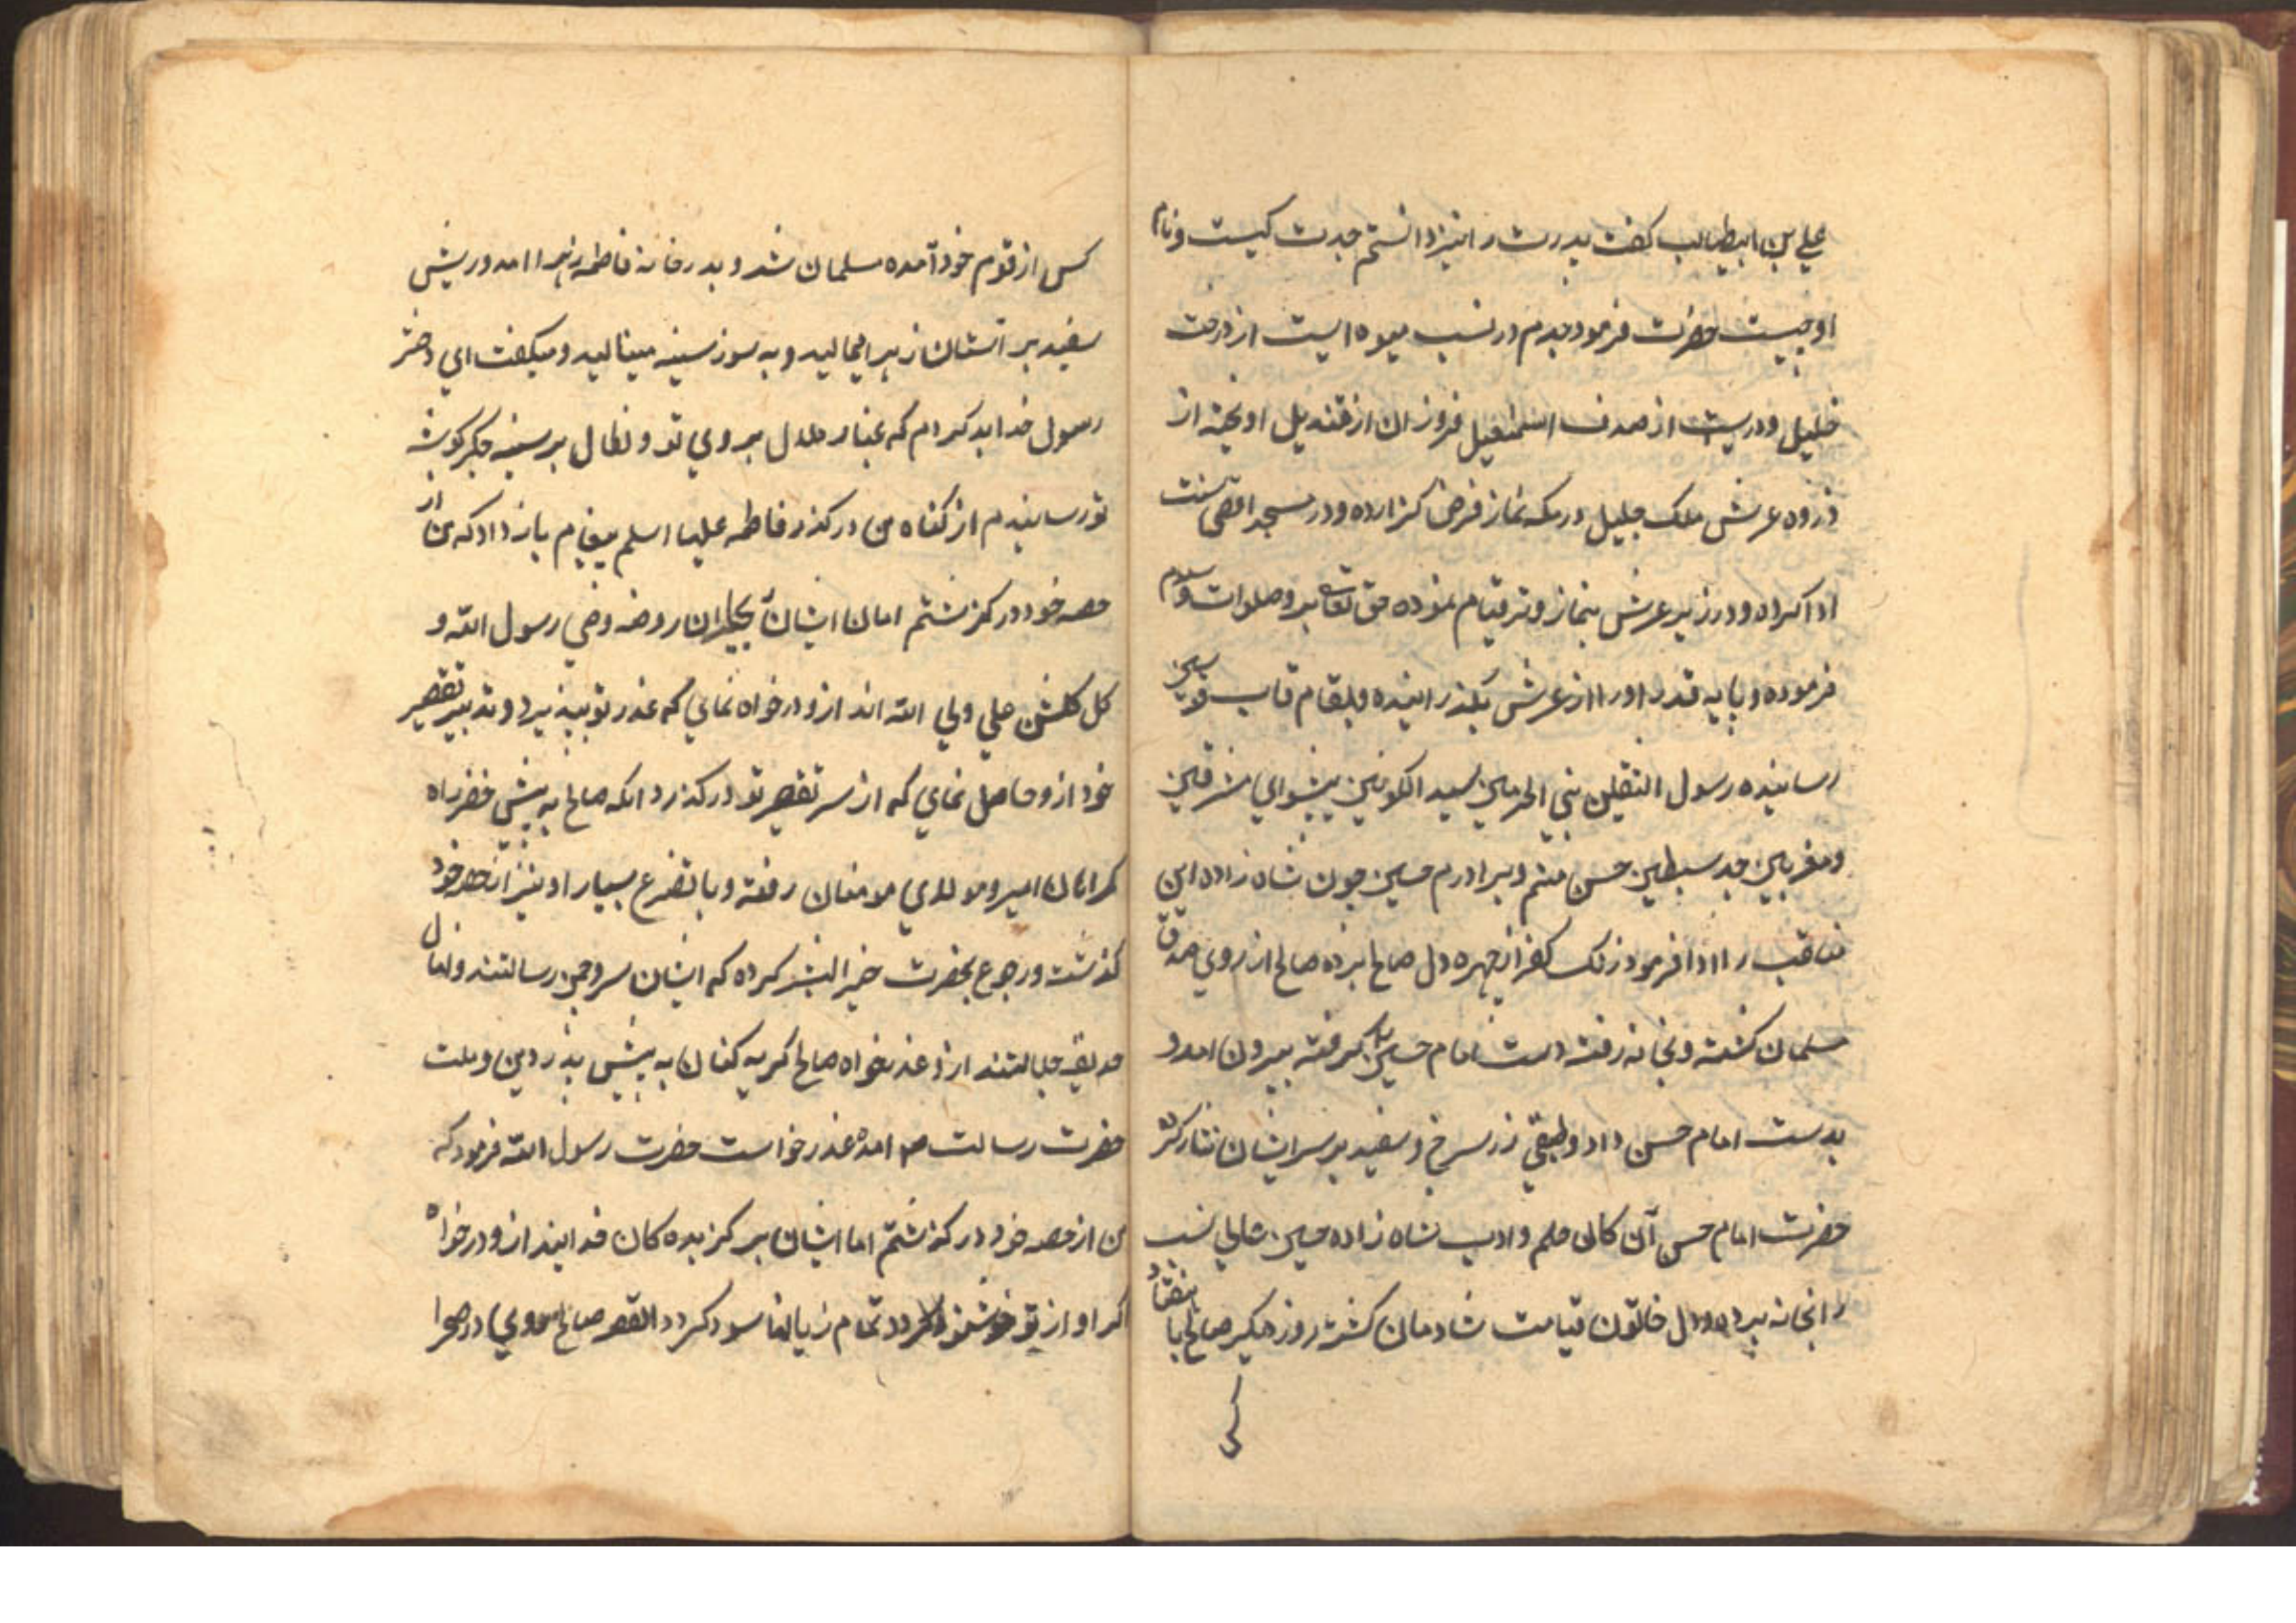 علي بن ابيطالب كفت پدرت را نيز دانستم جدت كيست و نام
او چيست حضرت فرمود جدم در نسب ميوه ايست از درخت
خليل و دريست از صدف اسمعيل فروزان از قنديل اويخته از
ذروه عرش ملك جليل در مكه نماز فرض كزارده و در مسجد اقصي سنت
ادا كرده و در زير عرش بنماز وتر قيام نموده حق تعالي برو صلوات و سلام
فرموده و پايه قدر او را از عرش بگذرانيده و بمقام قاب قوسين
رسانيده رسول الثقلين نبي الحرمين سيد الكونين پيشواي مشرقين
و مغربين جد سبطين حسن منم و برادرم حسين چون شاه زاده اين
مناقب را ادا فرمود زنك كفر از چهره دل صالح برده صالح از روي صدق
مسلمان كشته و بخانه رفته دست امام حسين را كرفته بيرون امد و
بدست امام حسن داد و طبقي زر سرخ و سفيد بر سر ايشان نثار كرد
حضرت امام حسن آن كان حلم و ادب شاه زاده حسين عالي نسب
را بخانه برده و دل خاتون قيامت شادمان كشته روز ديكر صالح با هفتاد
كس
كس از قوم خود آمده مسلمان شد و بدر خانه فاطمه زهرا امد و ريش
سفيد بر آستان زهرا ميماليد و به سوز سينه ميناليد و ميكفت اي دختر
رسول خدا بد كردم كه غبار ملال بروي تو و نطال بر سينه جكر كوشه
تو رسانيدم از كناه من در كذر فاطمه عليها اسلم پيغام باز داد كه من از
حصه خود در كزشتم اما ن ايشان روضه وضي رسول الله و
كل كلشن علي ولي الله اند ازو درخواه نماي كه عذر تو بپذيرد و تدبير تقصير
خود ازو حاصل نماي كه از سر تقصير تو در كذرد انكه صالح به پيش خضر راه
كمراهان امير و مولاي مومنان رفته و با تضرع بسيار او نيز از حصه خود
كذشت و رجوع بحضرت خير البشر كرده كه ايشان سرو چمن رسالتند و نهال
حديقه جلالتند ازو عذر خواه صالح كريه كنان به پيش بدر دين و ملت
حضرت رسالت ص امده عذر خواست حضرت رسول الله فرمود كه
من از حصه خود در كزشتم اما ايشان بر كزيده كان خدايند ازو درخواه
اكر او از تو خوشنود كردد تمام زيانها سود كردد القصه صالح در صحرا